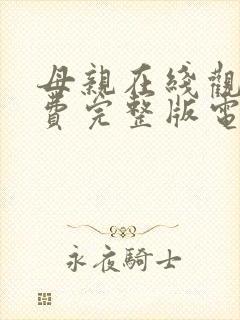 母親在綫觀
費完整版電
永夜騎士